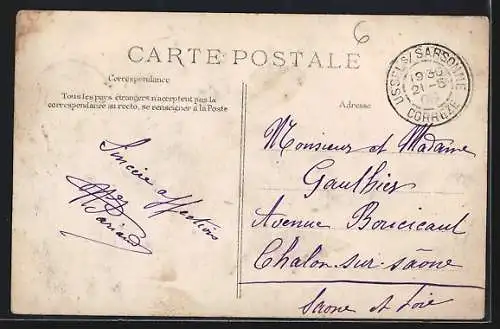 6
CARTE POSTALE
Correspondance
Tous les pays étrangers n'acceptent pas la
correspondance au recto, se renseigner à la Poste
Sincère affections
Adresse
Monsieur et Madame
Gaulthier
Avenue Boucicaut
Chalon-sur-Saône
Saone et Loire
USSEL S/SARSONNE
21-8
CORREZE